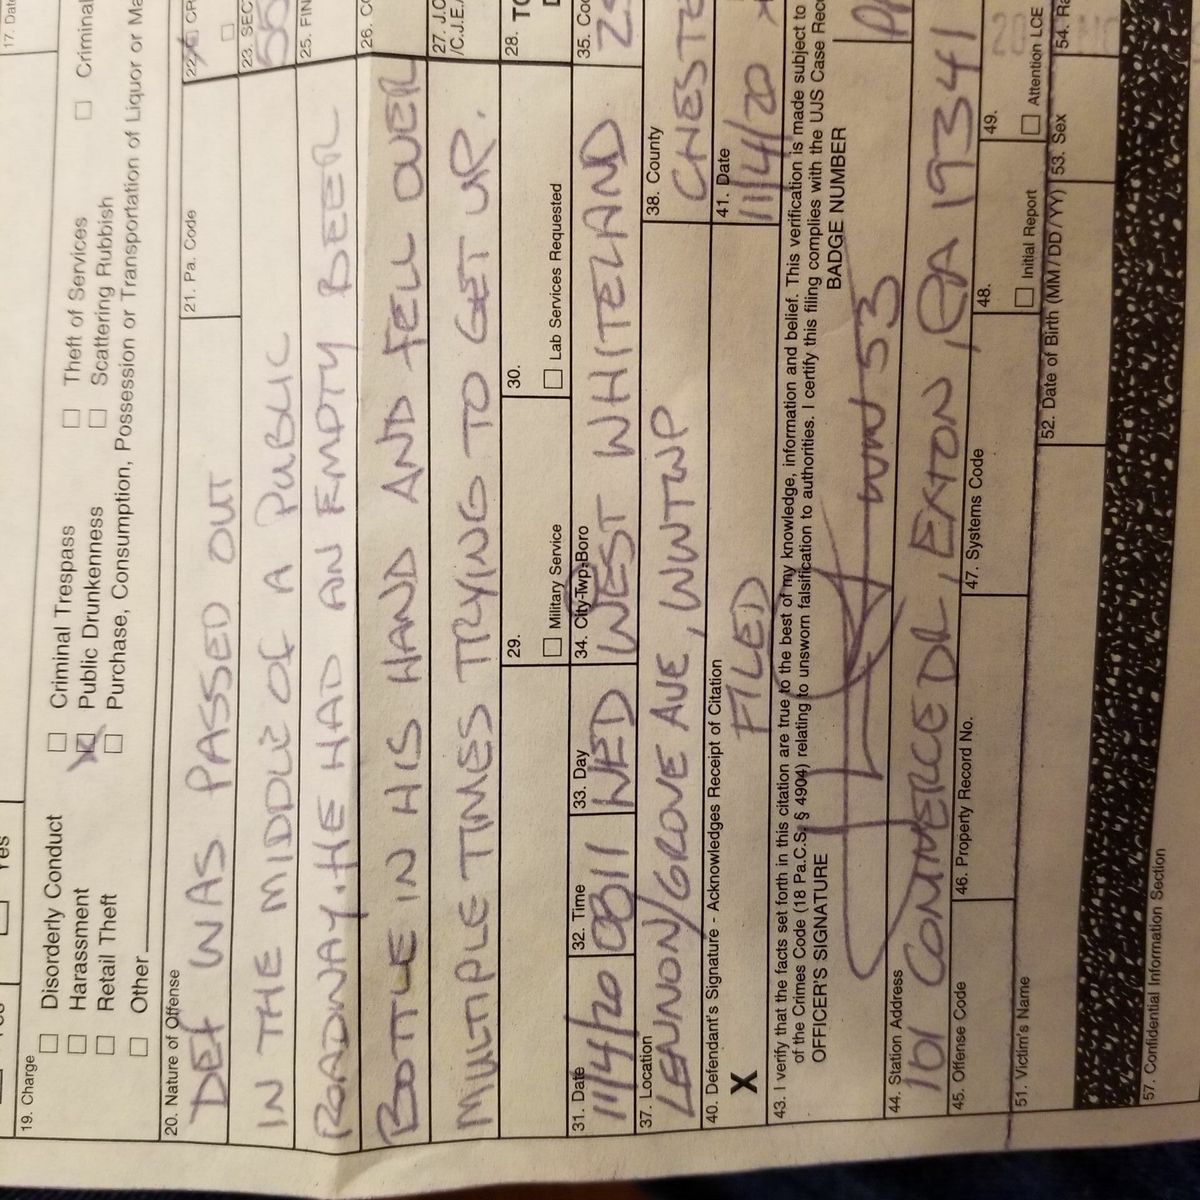 17. Date
Yes
19. Charge
Disorderly Conduct
Harassment
Retail Theft
Other
Criminal Trespass
Public Drunkenness
Purchase, Consumption, Possession or Transportation of Liquor or
Theft of Services
Scattering Rubbish
Criminal
20. Nature of Offense
21. Pa. Code
DEF WAS PASSED OUT
IN THE MIDDLE OF A PUBLIC
ROADWAY. HE HAD AN EMPTY BEER
BOTTLE IN HIS HAND AND FELL OVER
MULTIPLE TIMES TRYING TO GET UP.
29.
Military Service
30.
Lab Services Requested
28.
31. Date
11/4/20
32. Time
0811
33. Day
WED
34. City-Twp-Boro
WEST WHITELAND
37. Location
LENNON/GROVE AVE, WWTWP
38. County
40. Defendant's Signature - Acknowledges Receipt of Citation
X
FILED
41. Date
11/4/20
43. I verify that the facts set forth in this citation are true to the best of my knowledge, information and belief. This verification is made subject to
of the Crimes Code (18 Pa.C.S. § 4904) relating to unsworn falsification to authorities. I certify this filing complies with the UJS Case
OFFICER'S SIGNATURE
BADGE NUMBER
53
44. Station Address
101 COMMERCE DR, EXTON, PA 19341
45. Offense Code
46. Property Record No.
47. Systems Code
48.
Initial Report
49.
Attention LCE
51. Victim's Name
52. Date of Birth (MM/DD/YY)
53. Sex
54.
57. Confidential Information Section